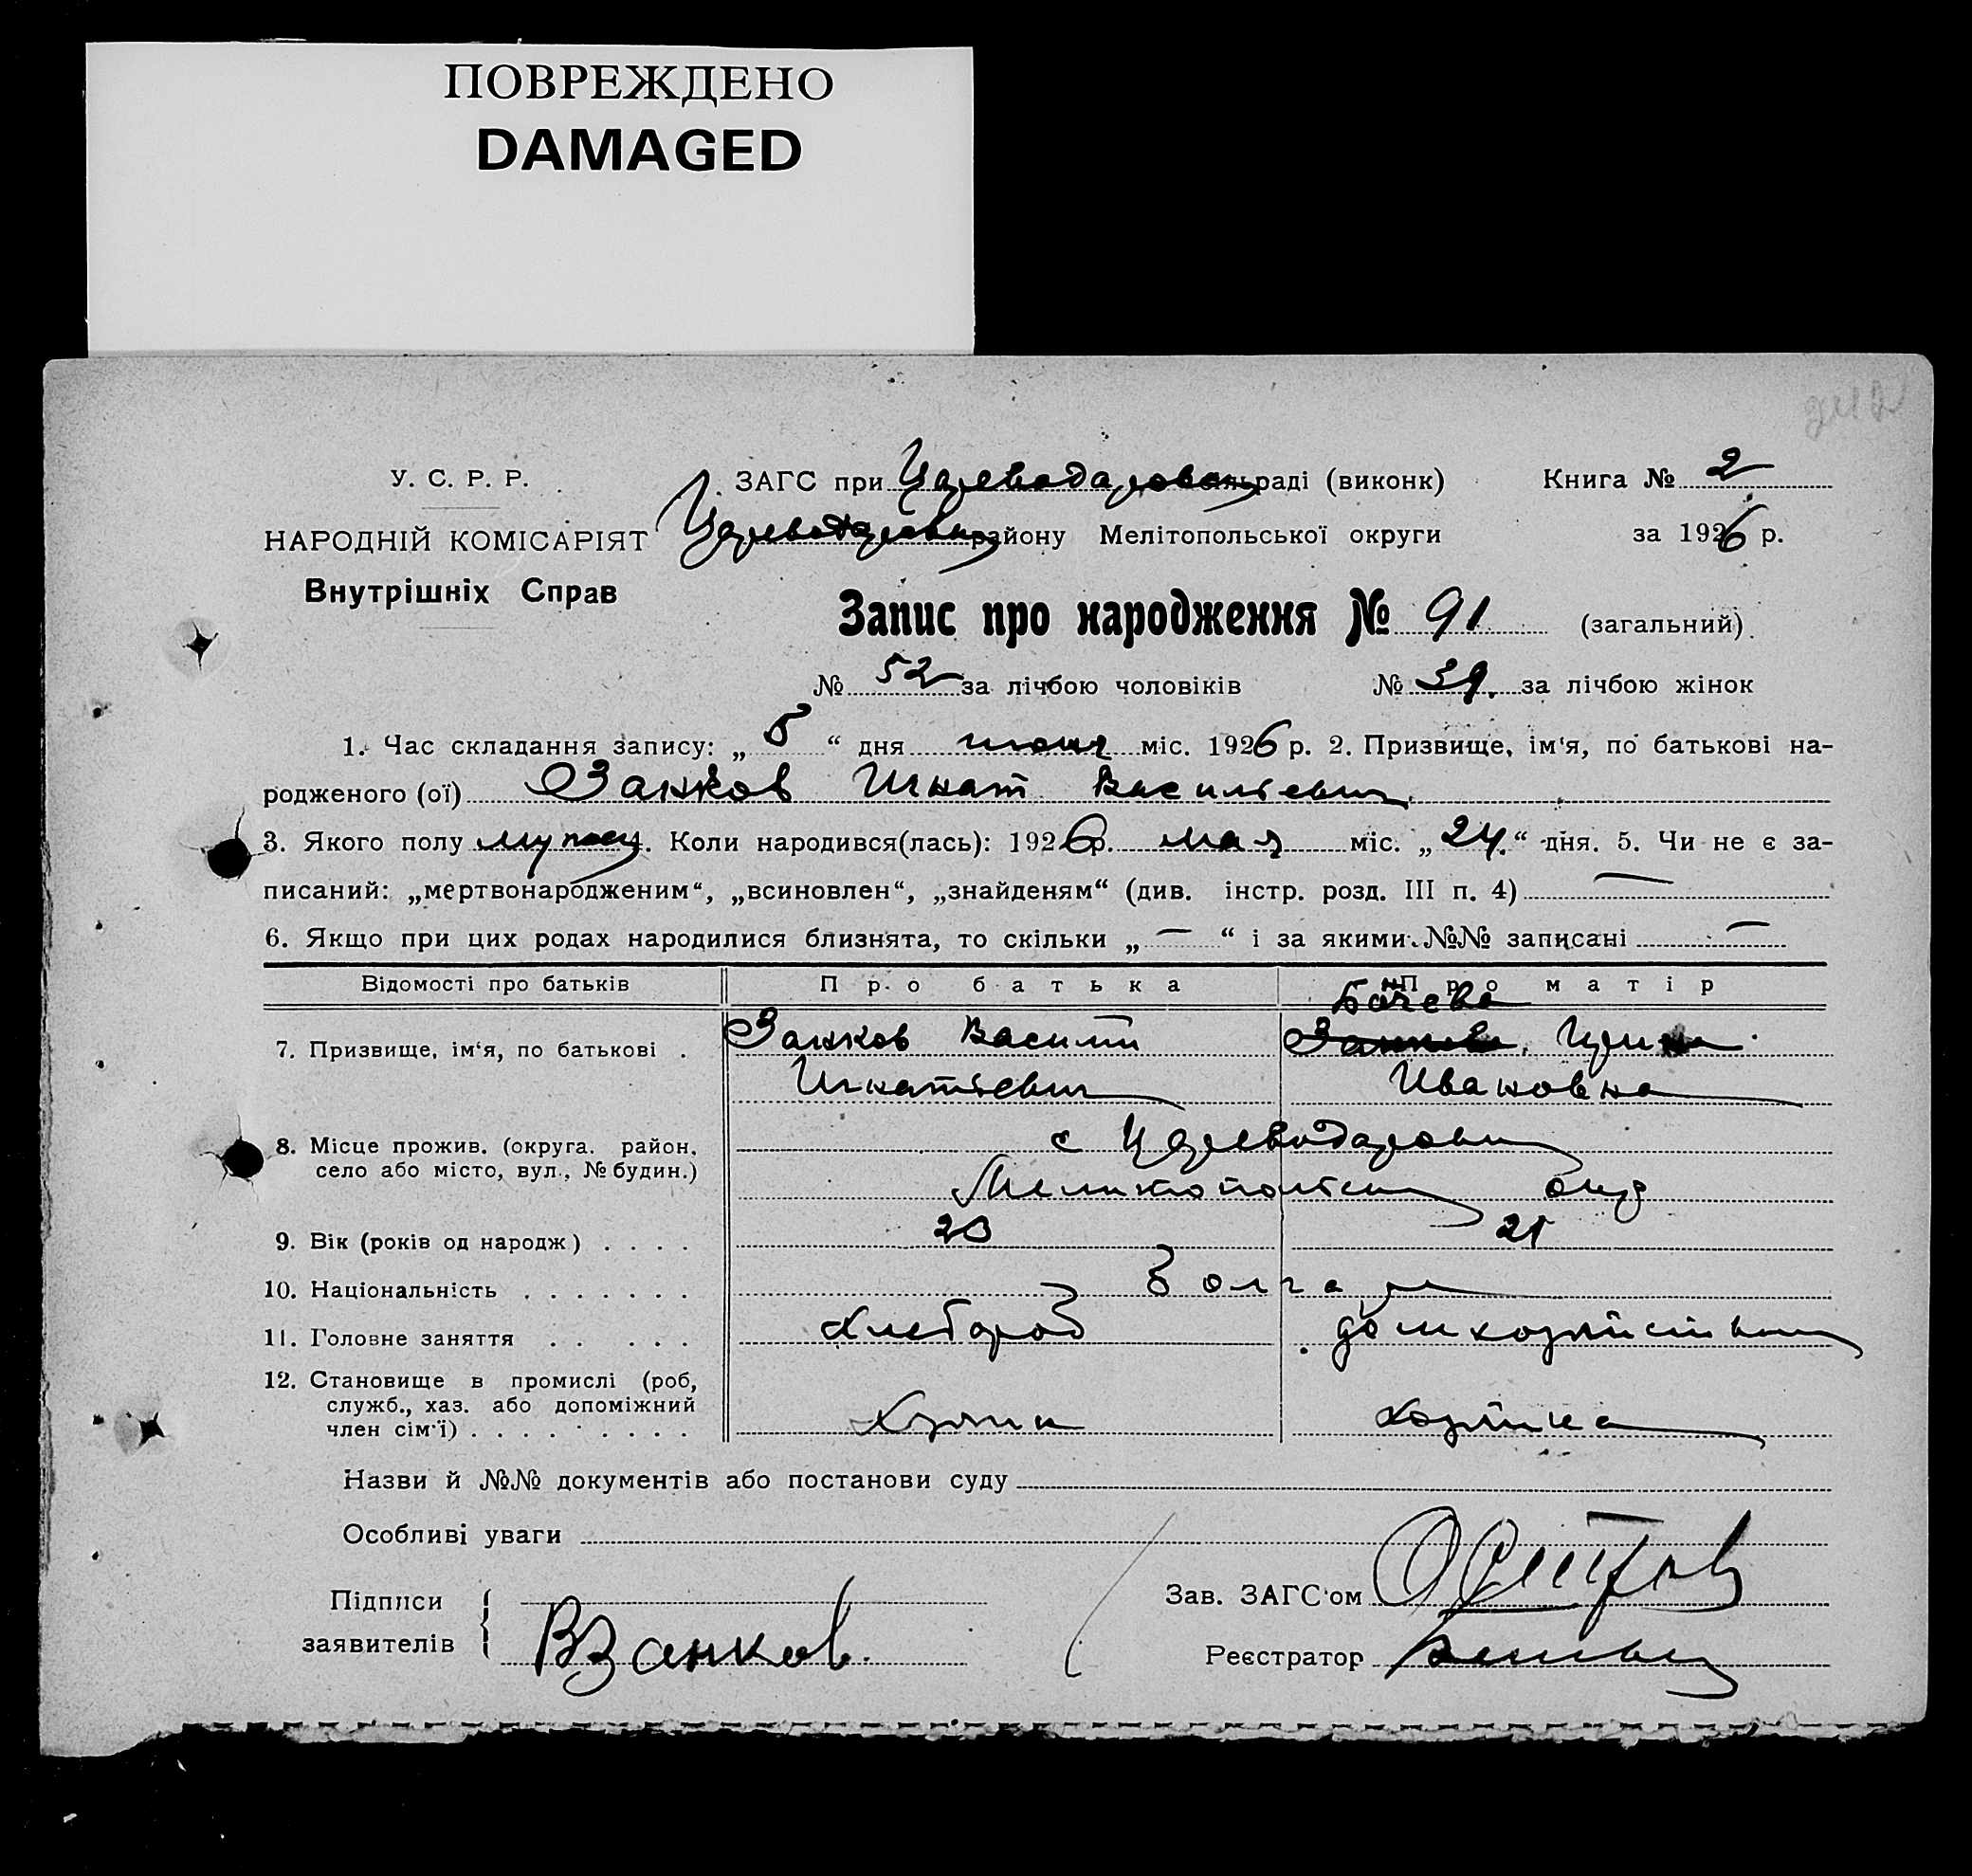 ПОВРЕЖДЕНО
DAMAGED
У. С. Р. Р.
ЗАГС при Цареводаровск сільраді (виконк)
Книга № 2
НАРОДНІЙ КОМІСАРІЯТ
Цареводаровск району Мелітопольської округи
за 1926 р.
Внутрішніх Справ
Запис про народження № 91 (загальний)
№ 52 за лічбою чоловіків № 39. за лічбою жінок
1. Час складання запису: „ 5 “ дня июня міс. 1926 р. 2. Призвище, ім‘я, по батькові на-
родженого (ої) Занков Игнат Васильевич
3. Якого полу мужск 4. Коли народився(лась): 1926 р. мая міс. „ 24. “ дня. 5. Чи не є за-
писаний: „мертвонародженим“, „всиновлен“, „знайденям“ (див. інстр. розд. III п. 4) —
6. Якщо при цих родах народилися близнята, то скільки „ — “ і за якими №№ записані —
Відомості про батьків Про батька Про матір
7. Призвище, ім‘я, по батькові . Занков Василий Ирина
Игнатьевич Ивановна
8. Місце прожив. (округа. район, с Цареводаровк
село або місто, вул., № будин.) Мелитопольск окр
9. Вік (років од народж) . . . . 20 21
10. Національність . . . . . . . Болгар
11. Головне заняття . . . . . Хлебороб домхозяйств
12. Становище в промислі (роб,
служб., хаз. або допоміжний
член сім‘ї) . . . . . . . . . Хозяин хозяйка
Назви й №№ документів або постанови суду
Особливі уваги
Підписи
заявителів
ВЗанков.
Зав. ЗАГС‘ом
Реєстратор